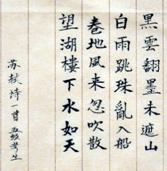 黑雲翻墨未遮山
白雨跳珠亂入船
卷地風来忽吹散
望湖樓下水如天
苏轼诗一首 考生